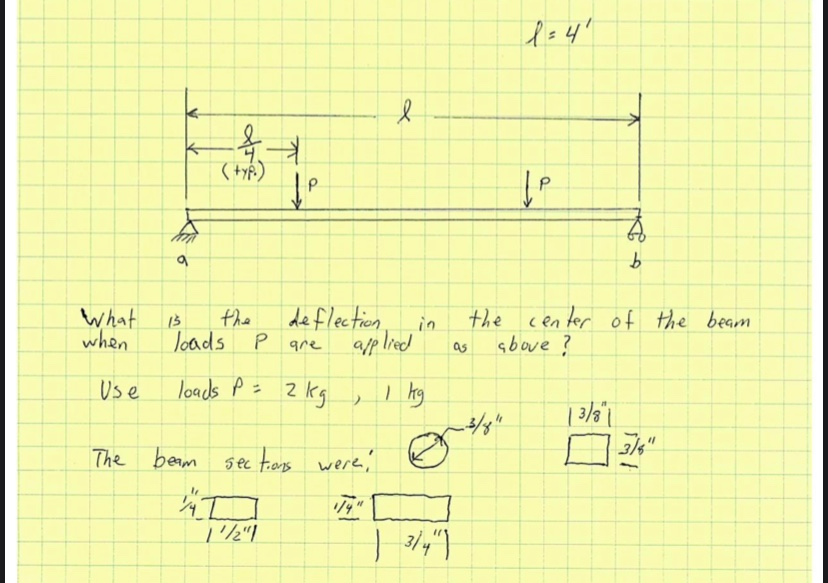 l = 4'
l
l/4
(typ.)
P
P
a
b
What is the deflection in the center of the beam
when loads P are applied as above?
Use loads P = 2 kg, 1 kg
3/8"
3/8"
3/8"
The beam sections were:
1/4"
1/2"
1/4"
3/4"